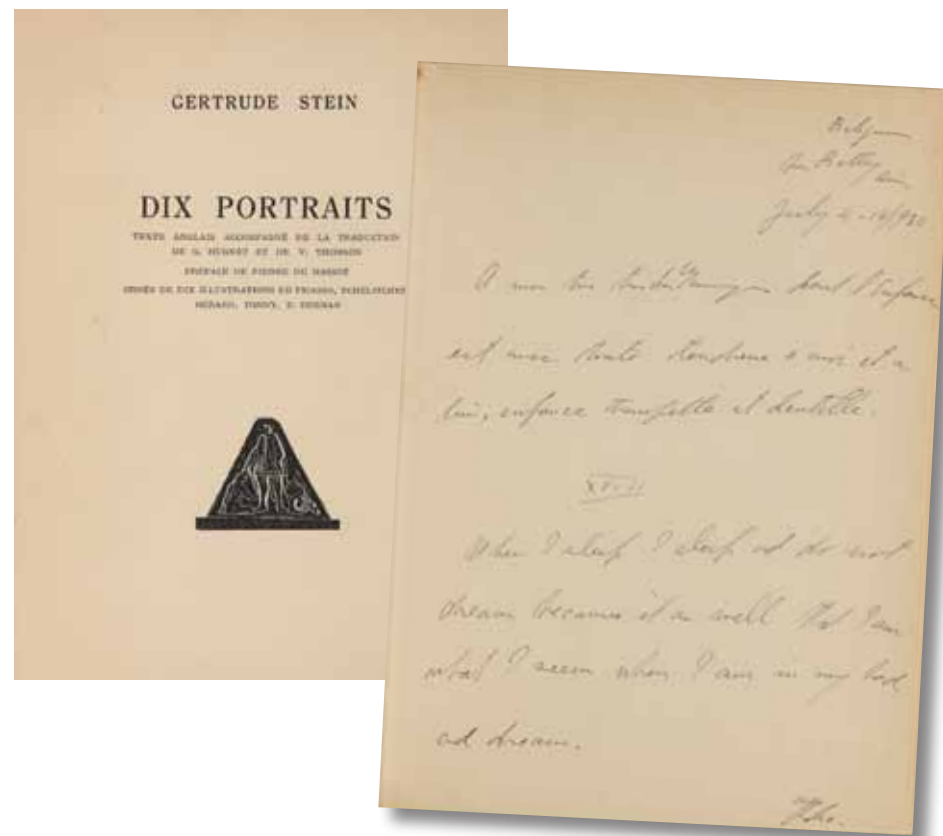 GERTRUDE STEIN
DIX PORTRAITS
TEXTE ANGLAIS ACCOMPAGNÉ DE LA TRADUCTION
DE G. HUGNET ET DE V. THOMSON
PRÉFACE DE PIERRE DE MASSOT
ORNÉS DE DIX ILLUSTRATIONS DE PICASSO, TCHELITCHEW
BÉRARD, TONNY, K. BERMAN
Belgium
July
A mon dont l'enfance
est une toute à moi et a
lui, enfance trompette et dentelle.
XVIII
When I sleep I sleep and do not
dream because it is as well that I am
what I seem when I am in my bed
and dream.